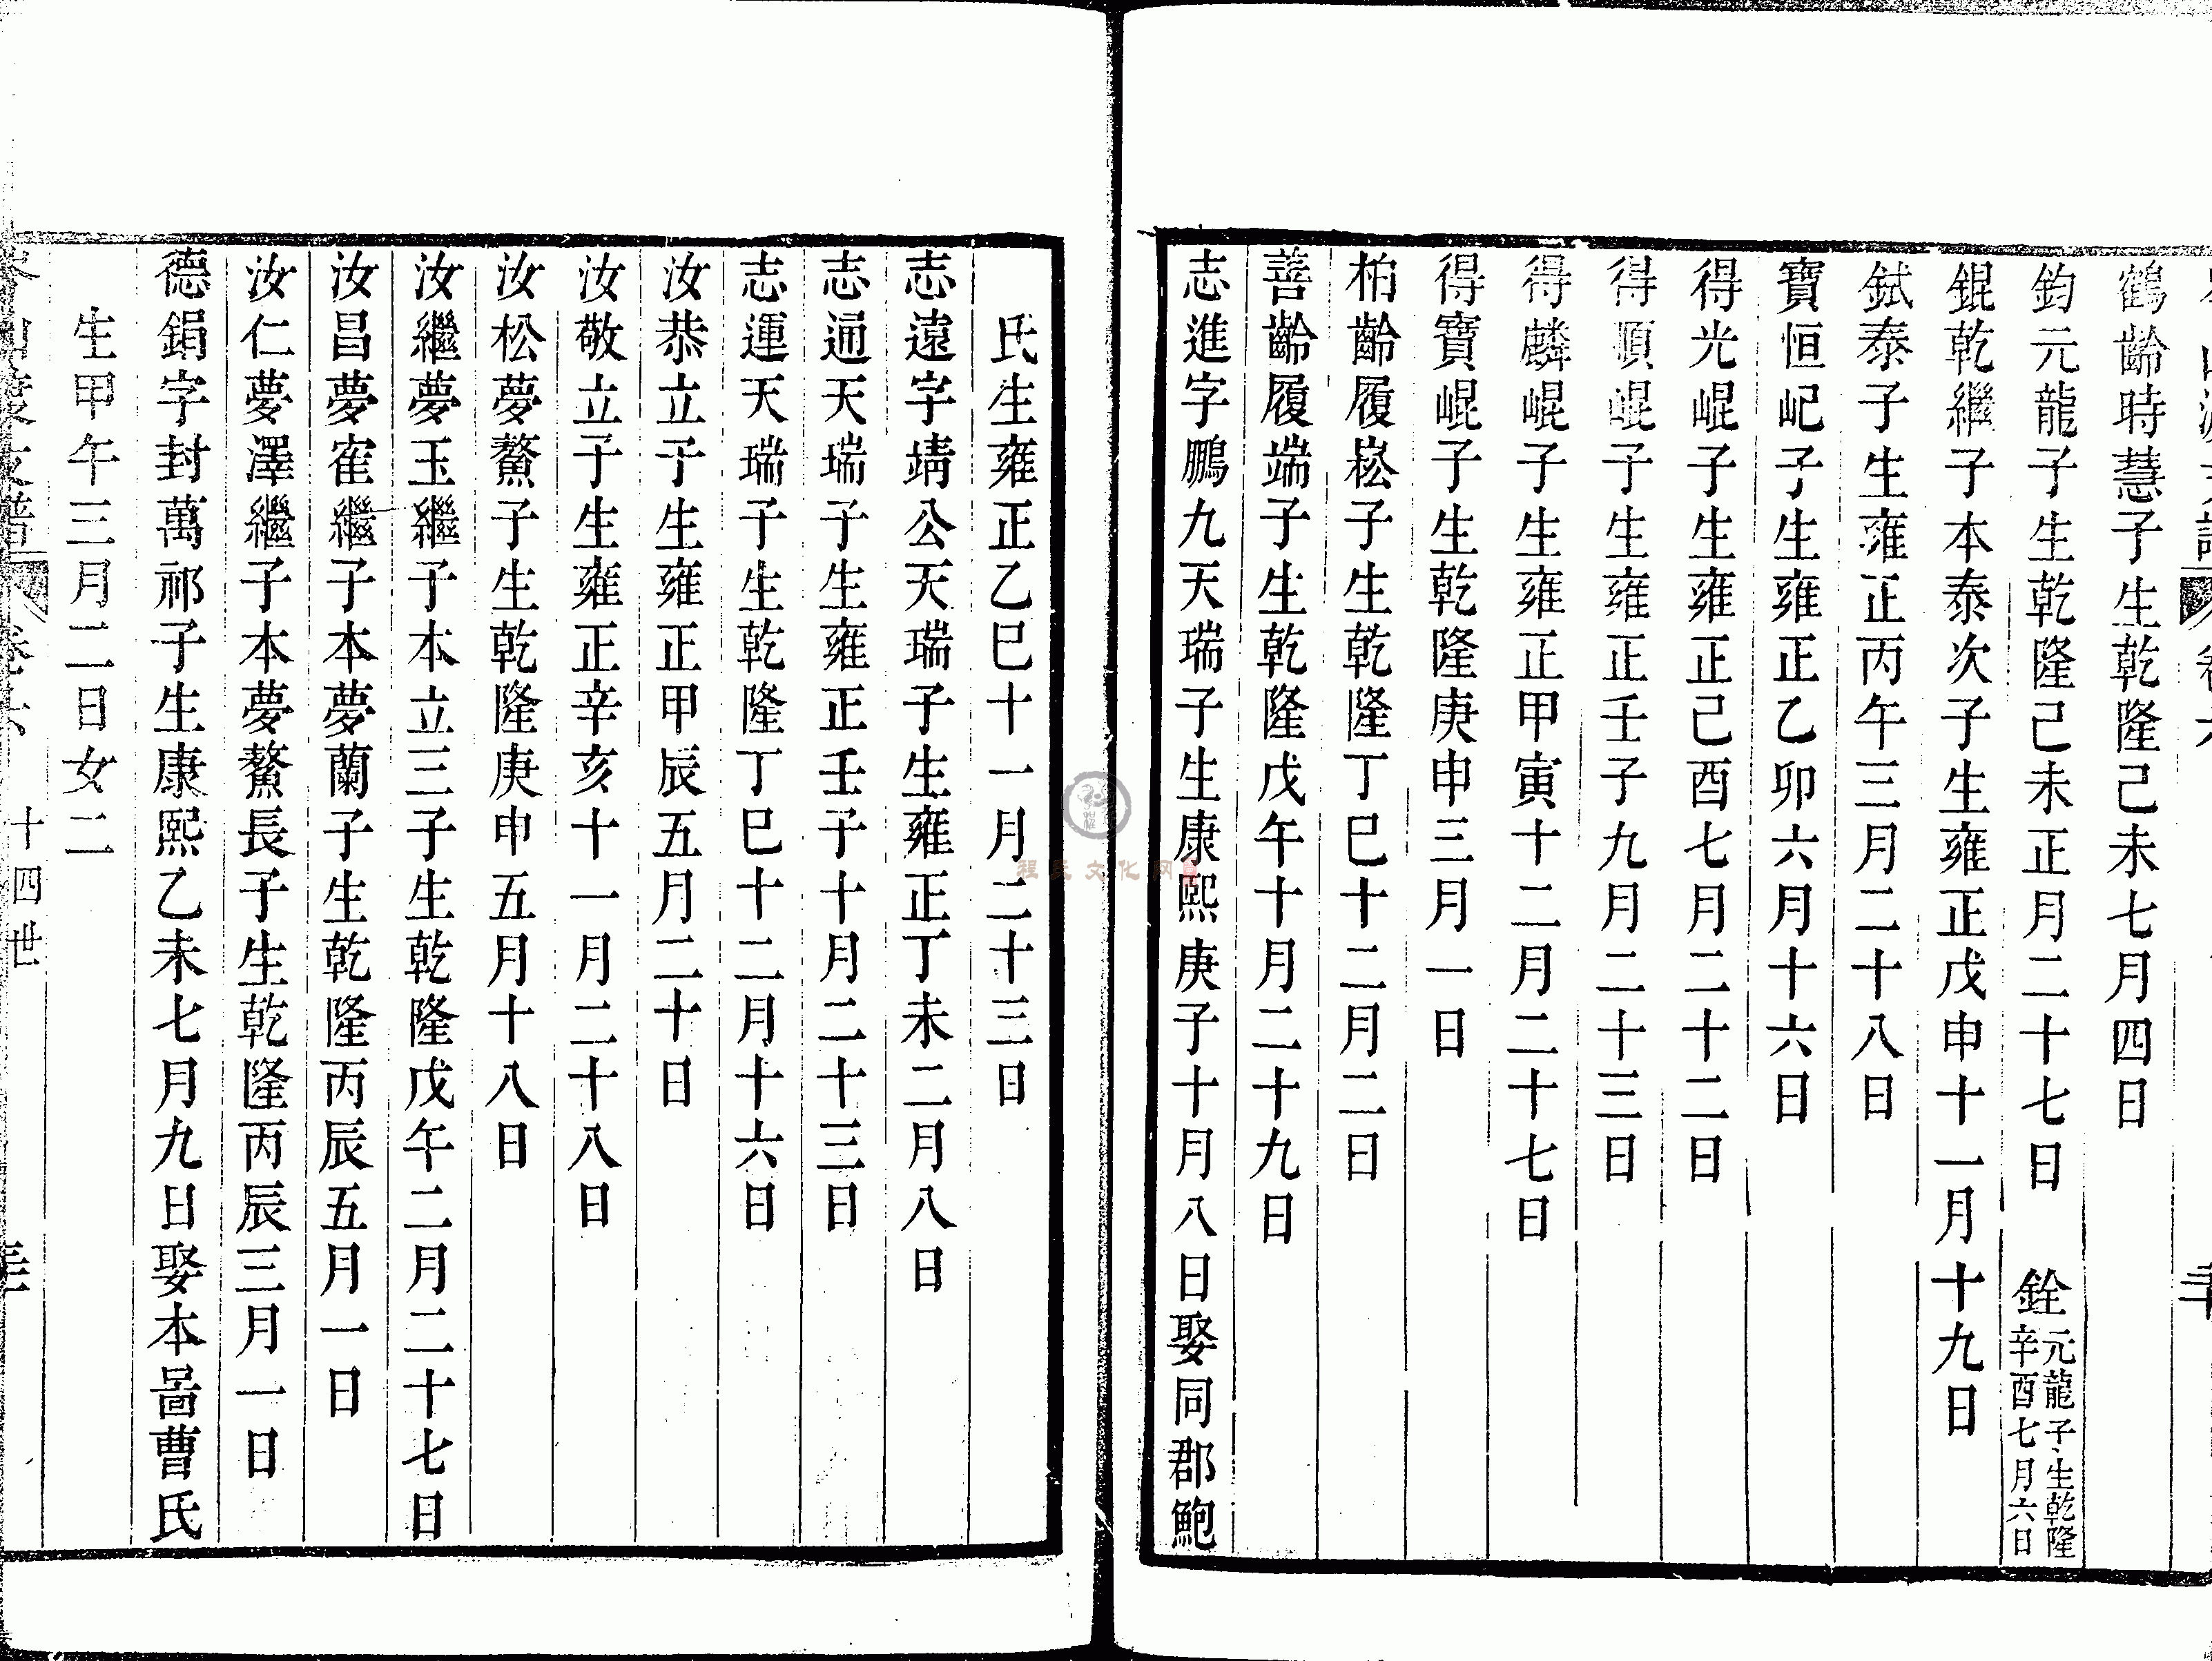 鶴齡時慧子生乾隆己未七月四日
鈞元龍子生乾隆己未正月二十七日 銓元龍子生乾隆辛酉七月六日
錕乾繼子本泰次子生雍正戊申十一月十九日
鉽泰子生雍正丙午三月二十八日
寶恒屺子生雍正乙卯六月十六日
得光崐子生雍正己酉七月二十二日
得順崐子生雍正壬子九月二十三日
得麟崐子生雍正甲寅十二月二十七日
得寶崐子生乾隆庚申三月一日
柏齡履崧子生乾隆丁巳十二月二日
善齡履端子生乾隆戊午十月二十九日
志進字鵬九天瑞子生康熙庚子十月八日娶同郡鮑
氏生雍正乙巳十一月二十三日
志遠字靖公天瑞子生雍正丁未二月八日
志通天瑞子生雍正壬子十月二十三日
志運天瑞子生乾隆丁巳十二月十六日
汝恭立子生雍正甲辰五月二十日
汝敬立子生雍正辛亥十一月二十八日
汝松夢鰲子生乾隆庚申五月十八日
汝繼夢玉繼子本立三子生乾隆戊午二月二十七日
汝昌夢寉繼子本夢蘭子生乾隆丙辰五月一日
汝仁夢澤繼子本夢鰲長子生乾隆丙辰三月一日
德鋗字封萬祁子生康熙乙未七月九日娶本啚曹氏
生甲午三月二日女二
卷六 十四世
程氏文化网